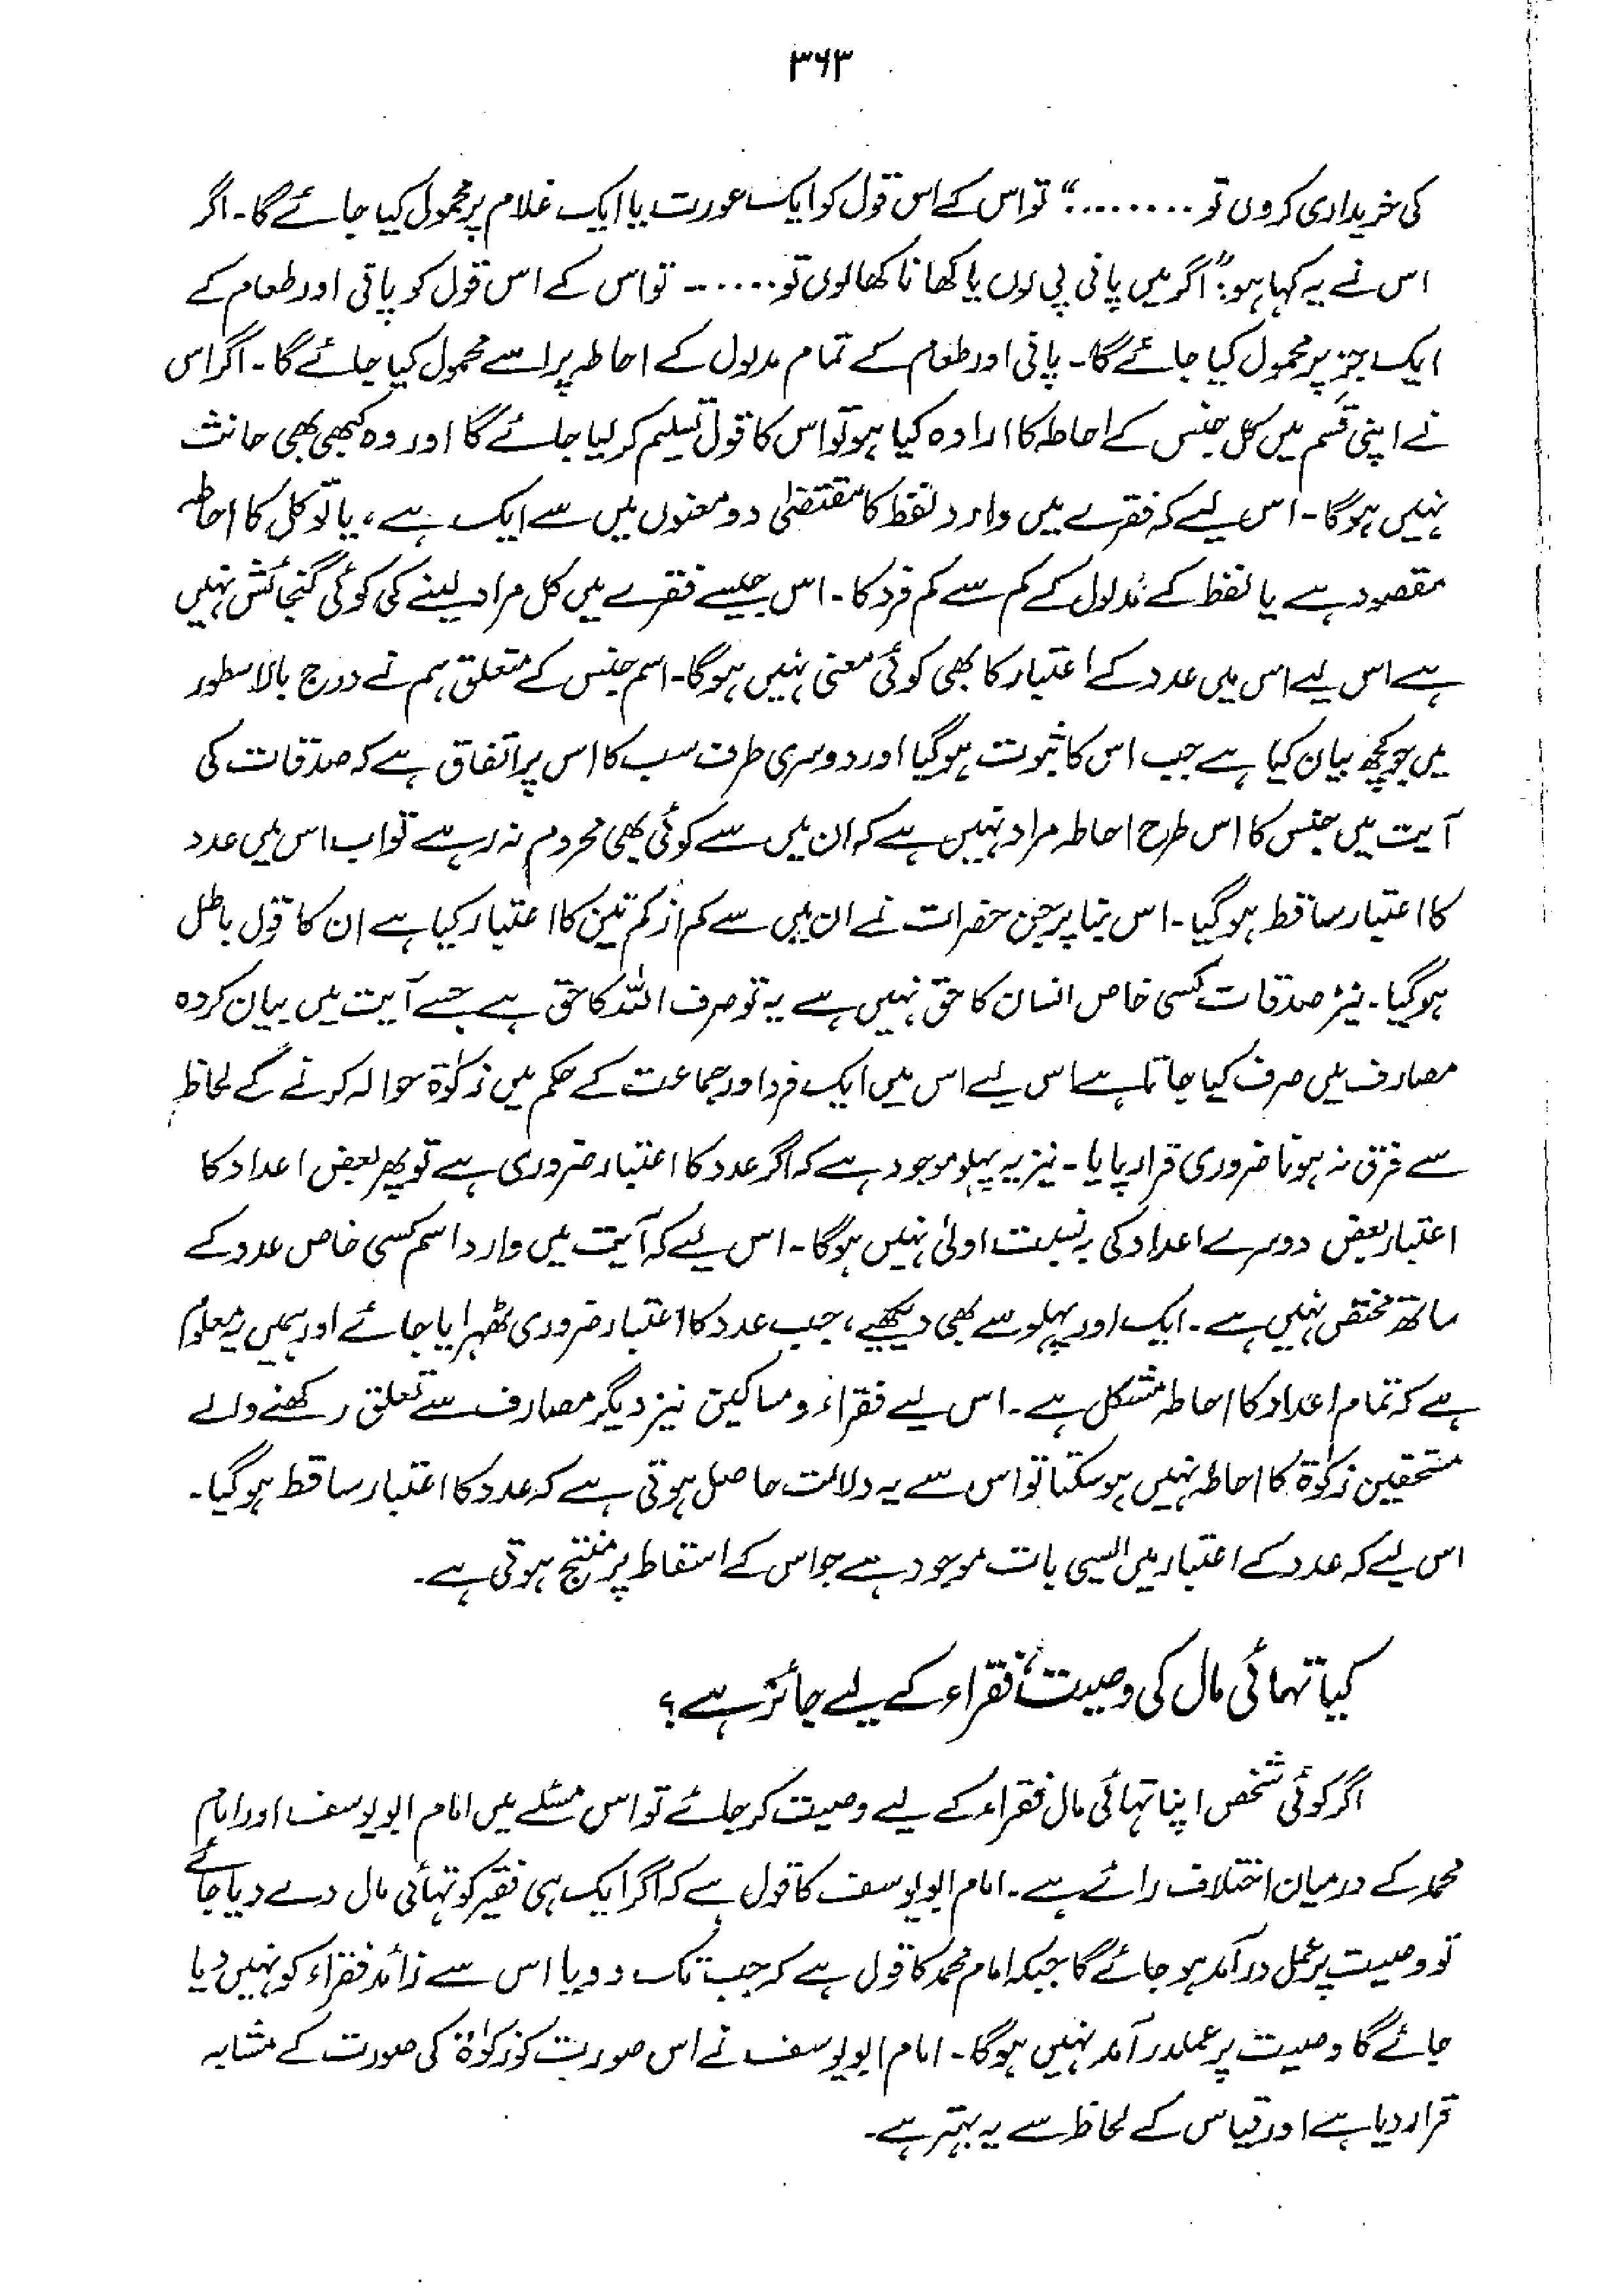 ۳۶۳
کی خریداری کروں تو ........“ تو اس کے اس قول کو ایک عورت یا ایک غلام پر محمول کیا جائے گا۔ اگر
اس نے یہ کہا ہو: "اگر میں پانی پی لوں یا کھانا کھا لوں تو...... تو اس کے اس قول کو پانی اور طعام کے
ایک جز پر محمول کیا جائے گا۔ پانی اور طعام کے تمام مدلول کے احاطہ پر اسے محمول کیا جائے گا۔ اگر اس
نے اپنی قسم میں کل جنس کے احاطہ کا ارادہ کیا ہو تو اس کا قول تسلیم کر لیا جائے گا اور وہ کبھی بھی حانث
نہیں ہوگا۔ اس لیے کہ فقرے میں وارد لفظ کا مقتضیٰ دو معنوں میں سے ایک ہے، یا تو کل کا احاطہ
مقصود ہے یا لفظ کے مدلول کے کم سے کم فرد کا۔ اس جیسے فقرے میں کل مراد لینے کی کوئی گنجائش نہیں
ہے اس لیے اس میں عدد کے اعتبار کا بھی کوئی معنی نہیں ہوگا۔ اسم جنس کے متعلق ہم نے درج بالا سطور
میں جو کچھ بیان کیا ہے جب اس کا ثبوت ہوگیا اور دوسری طرف سب کا اس پر اتفاق ہے کہ صدقات کی
آیت میں جنس کا اس طرح احاطہ مراد نہیں ہے کہ ان میں سے کوئی بھی محروم نہ رہے تو اب اس میں عدد
کا اعتبار ساقط ہوگیا۔ اس بنا پر جن حضرات نے ان میں سے کم از کم تین کا اعتبار کیا ہے ان کا قول باطل
ہوگیا۔ نیز صدقات کسی خاص انسان کا حق نہیں ہے یہ تو صرف اللہ کا حق ہے جسے آیت میں بیان کردہ
مصارف میں صرف کیا جاتا ہے اس لیے اس میں ایک فرد اور جماعت کے حکم میں زکوٰۃ حوالہ کرنے کے لحاظ
سے فرق نہ ہونا ضروری قرار پایا۔ نیز یہ پہلو موجود ہے کہ اگر عدد کا اعتبار ضروری ہے تو پھر بعض اعداد کا
اعتبار بعض دوسرے اعداد کی بہ نسبت اولیٰ نہیں ہوگا۔ اس لیے کہ آیت میں وارد اسم کسی خاص عدد کے
ساتھ مختص نہیں ہے۔ ایک اور پہلو سے بھی دیکھیے، جب عدد کا اعتبار ضروری ٹھہرایا جائے اور ہمیں یہ معلوم
ہے کہ تمام اعداد کا احاطہ مشکل ہے۔ اس لیے فقراء و مساکین نیز دیگر مصارف سے تعلق رکھنے والے
مستحقین زکوٰۃ کا احاطہ نہیں ہو سکتا تو اس سے یہ دلالت حاصل ہوتی ہے کہ عدد کا اعتبار ساقط ہوگیا۔
اس لیے کہ عدد کے اعتبار میں ایسی بات موجود ہے جو اس کے اسقاط پر منتج ہوتی ہے۔
کیا تہائی مال کی وصیت، فقراء کے لیے جائز ہے؟
اگر کوئی شخص اپنا تہائی مال فقراء کے لیے وصیت کر جائے تو اس مسئلے میں امام ابو یوسف اور امام
محمد کے درمیان اختلاف رائے ہے۔ امام ابو یوسف کا قول ہے کہ اگر ایک ہی فقیر کو تہائی مال دے دیا جائے
تو وصیت پر عمل درآمد ہو جائے گا جبکہ امام محمد کا قول ہے کہ جب تک دو یا اس سے زائد فقراء کو نہیں دیا
جائے گا وصیت پر عملدرآمد نہیں ہوگا۔ امام ابو یوسف نے اس صورت کو زکوٰۃ کی صورت کے مشابہ
قرار دیا ہے اور قیاس کے لحاظ سے یہ بہتر ہے۔